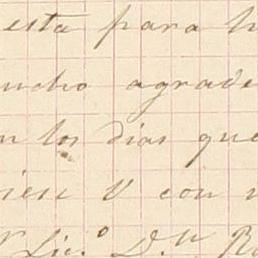 esta para h
ucho agrade
n los dias que
iese V con
Lic.º D.n Ro